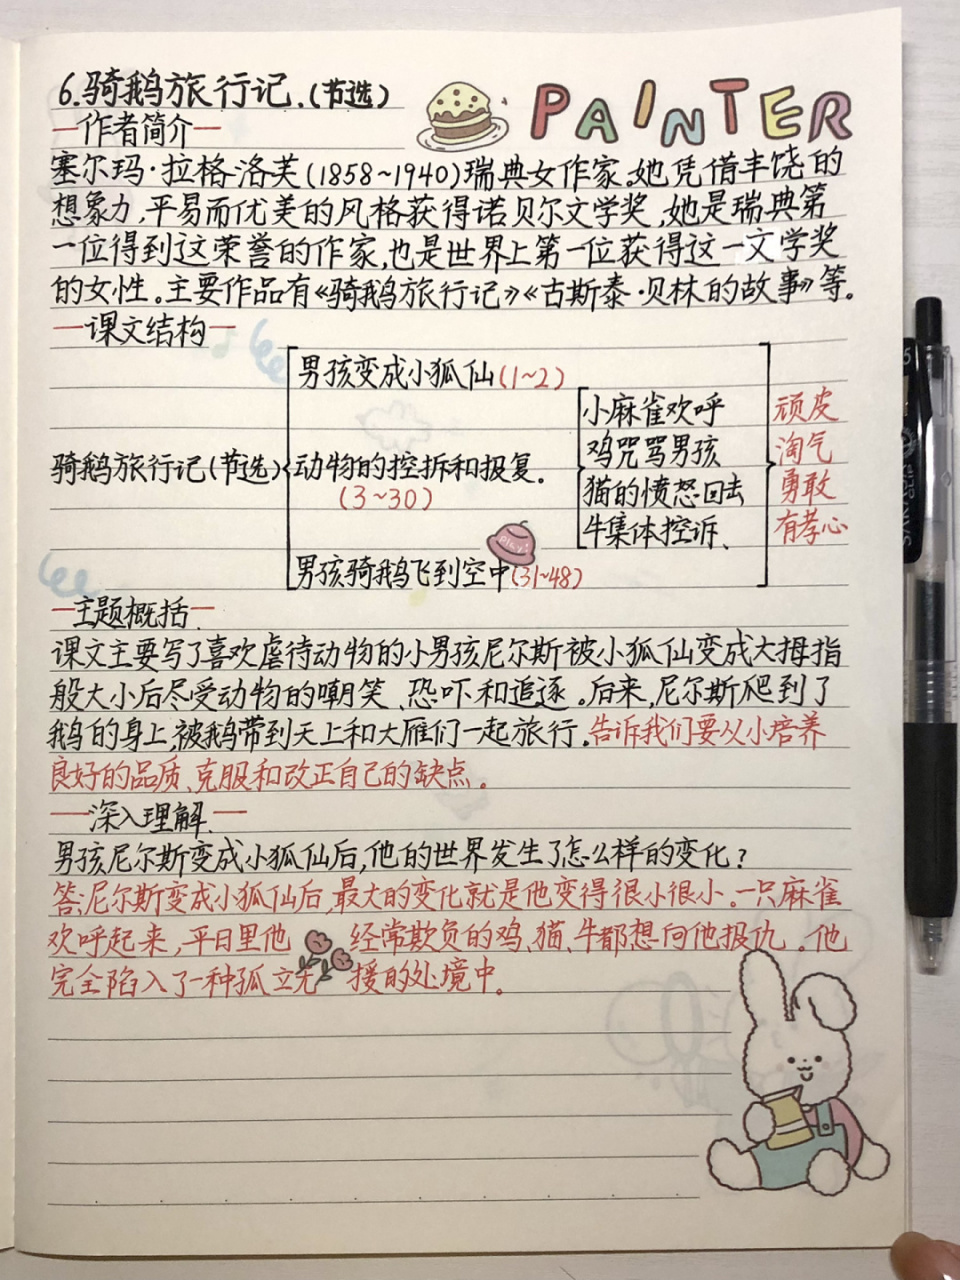 6.骑鹅旅行记.(节选)
PAINTER
一作者简介一
塞尔玛·拉格洛芙(1858~1940)瑞典女作家。她凭借丰饶的
想象力,平易而优美的风格获得诺贝尔文学奖,她是瑞典第
一位得到这荣誉的作家,也是世界上第一位获得这一文学奖
的女性。主要作品有《骑鹅旅行记》《古斯泰·贝林的故事》等。
一课文结构一
男孩变成小狐仙(1~2)
骑鹅旅行记(节选)
动物的控拆和报复.
(3~30)
小麻雀欢呼
鸡咒骂男孩
猫的愤怒回击
牛集体控诉、
顽皮
淘气
勇敢
有孝心
play
男孩骑鹅飞到空中(31~48)
一主题概括一
课文主要写了喜欢虐待动物的小男孩尼尔斯被小狐仙变成大拇指
般大小后尽受动物的嘲笑、恐吓和追逐。后来,尼尔斯爬到了
鹅的身上,被鹅带到天上和大雁们一起旅行.告诉我们要从小培养
良好的品质、克服和改正自己的缺点。
一深入理解.一
男孩尼尔斯变成小狐仙后,他的世界发生了怎么样的变化?
答:尼尔斯变成小狐仙后,最大的变化就是他变得很小很小。一只麻雀
欢呼起来,平日里他 经常欺负的鸡、猫、牛都想向他报仇。他
完全陷入了一种孤立无 援的处境中。